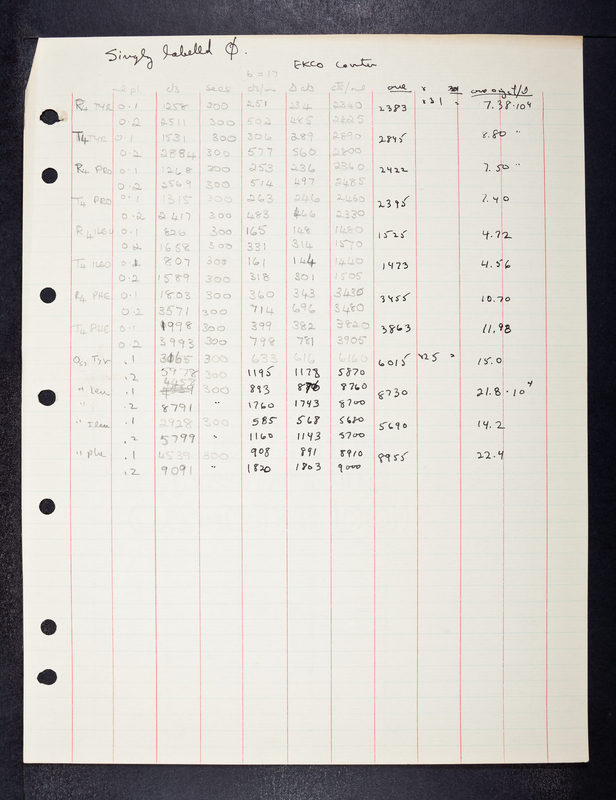 Singly labelled φ.
EKCO Counter
b = 17
ml pl. cts secs cts/m Δ cts cts/ml ave x
R4 TYR 0.1 1258 300 251 234 2340 2383 x31 " 7.38·10⁴
0.2 2511 300 502 485 2425
T4 TYR 0.1 1531 300 306 289 2890 2845 8.80 "
0.2 2884 300 577 560 2800
R4 PRO 0.1 1268 300 253 236 2360 2422 7.50 "
0.2 2569 300 514 497 2485
T4 PRO 0.1 1315 300 263 246 2460 2395 7.40
0.2 2417 300 483 466 2330
R4 ILEU 0.1 826 300 165 148 1480 1525 4.72
0.2 1658 300 331 314 1570
T4 ILEU 0.1 807 300 161 144 1440 1473 4.56
0.2 1589 300 318 301 1505
R4 PHE 0.1 1803 300 360 343 3430 3455 10.70
0.2 3571 300 714 696 3480
T4 PHE 0.1 1998 300 399 382 3820 3863 11.98
0.2 3993 300 798 781 3905
Os, Tyr .1 3165 300 633 616 6160 6015 x25 " 15.0
.2 5978 300 1195 1178 5870
" Leu .1 4458 300 893 876 8760 8730 21.8·10⁴
" .2 8791 " 1760 1743 8700
" Ileu .1 2928 300 585 568 5680 5690 14.2
.2 5799 " 1160 1143 5700
" Phe .1 4539 300 908 891 8910 8955 22.4
.2 9091 " 1820 1803 9000